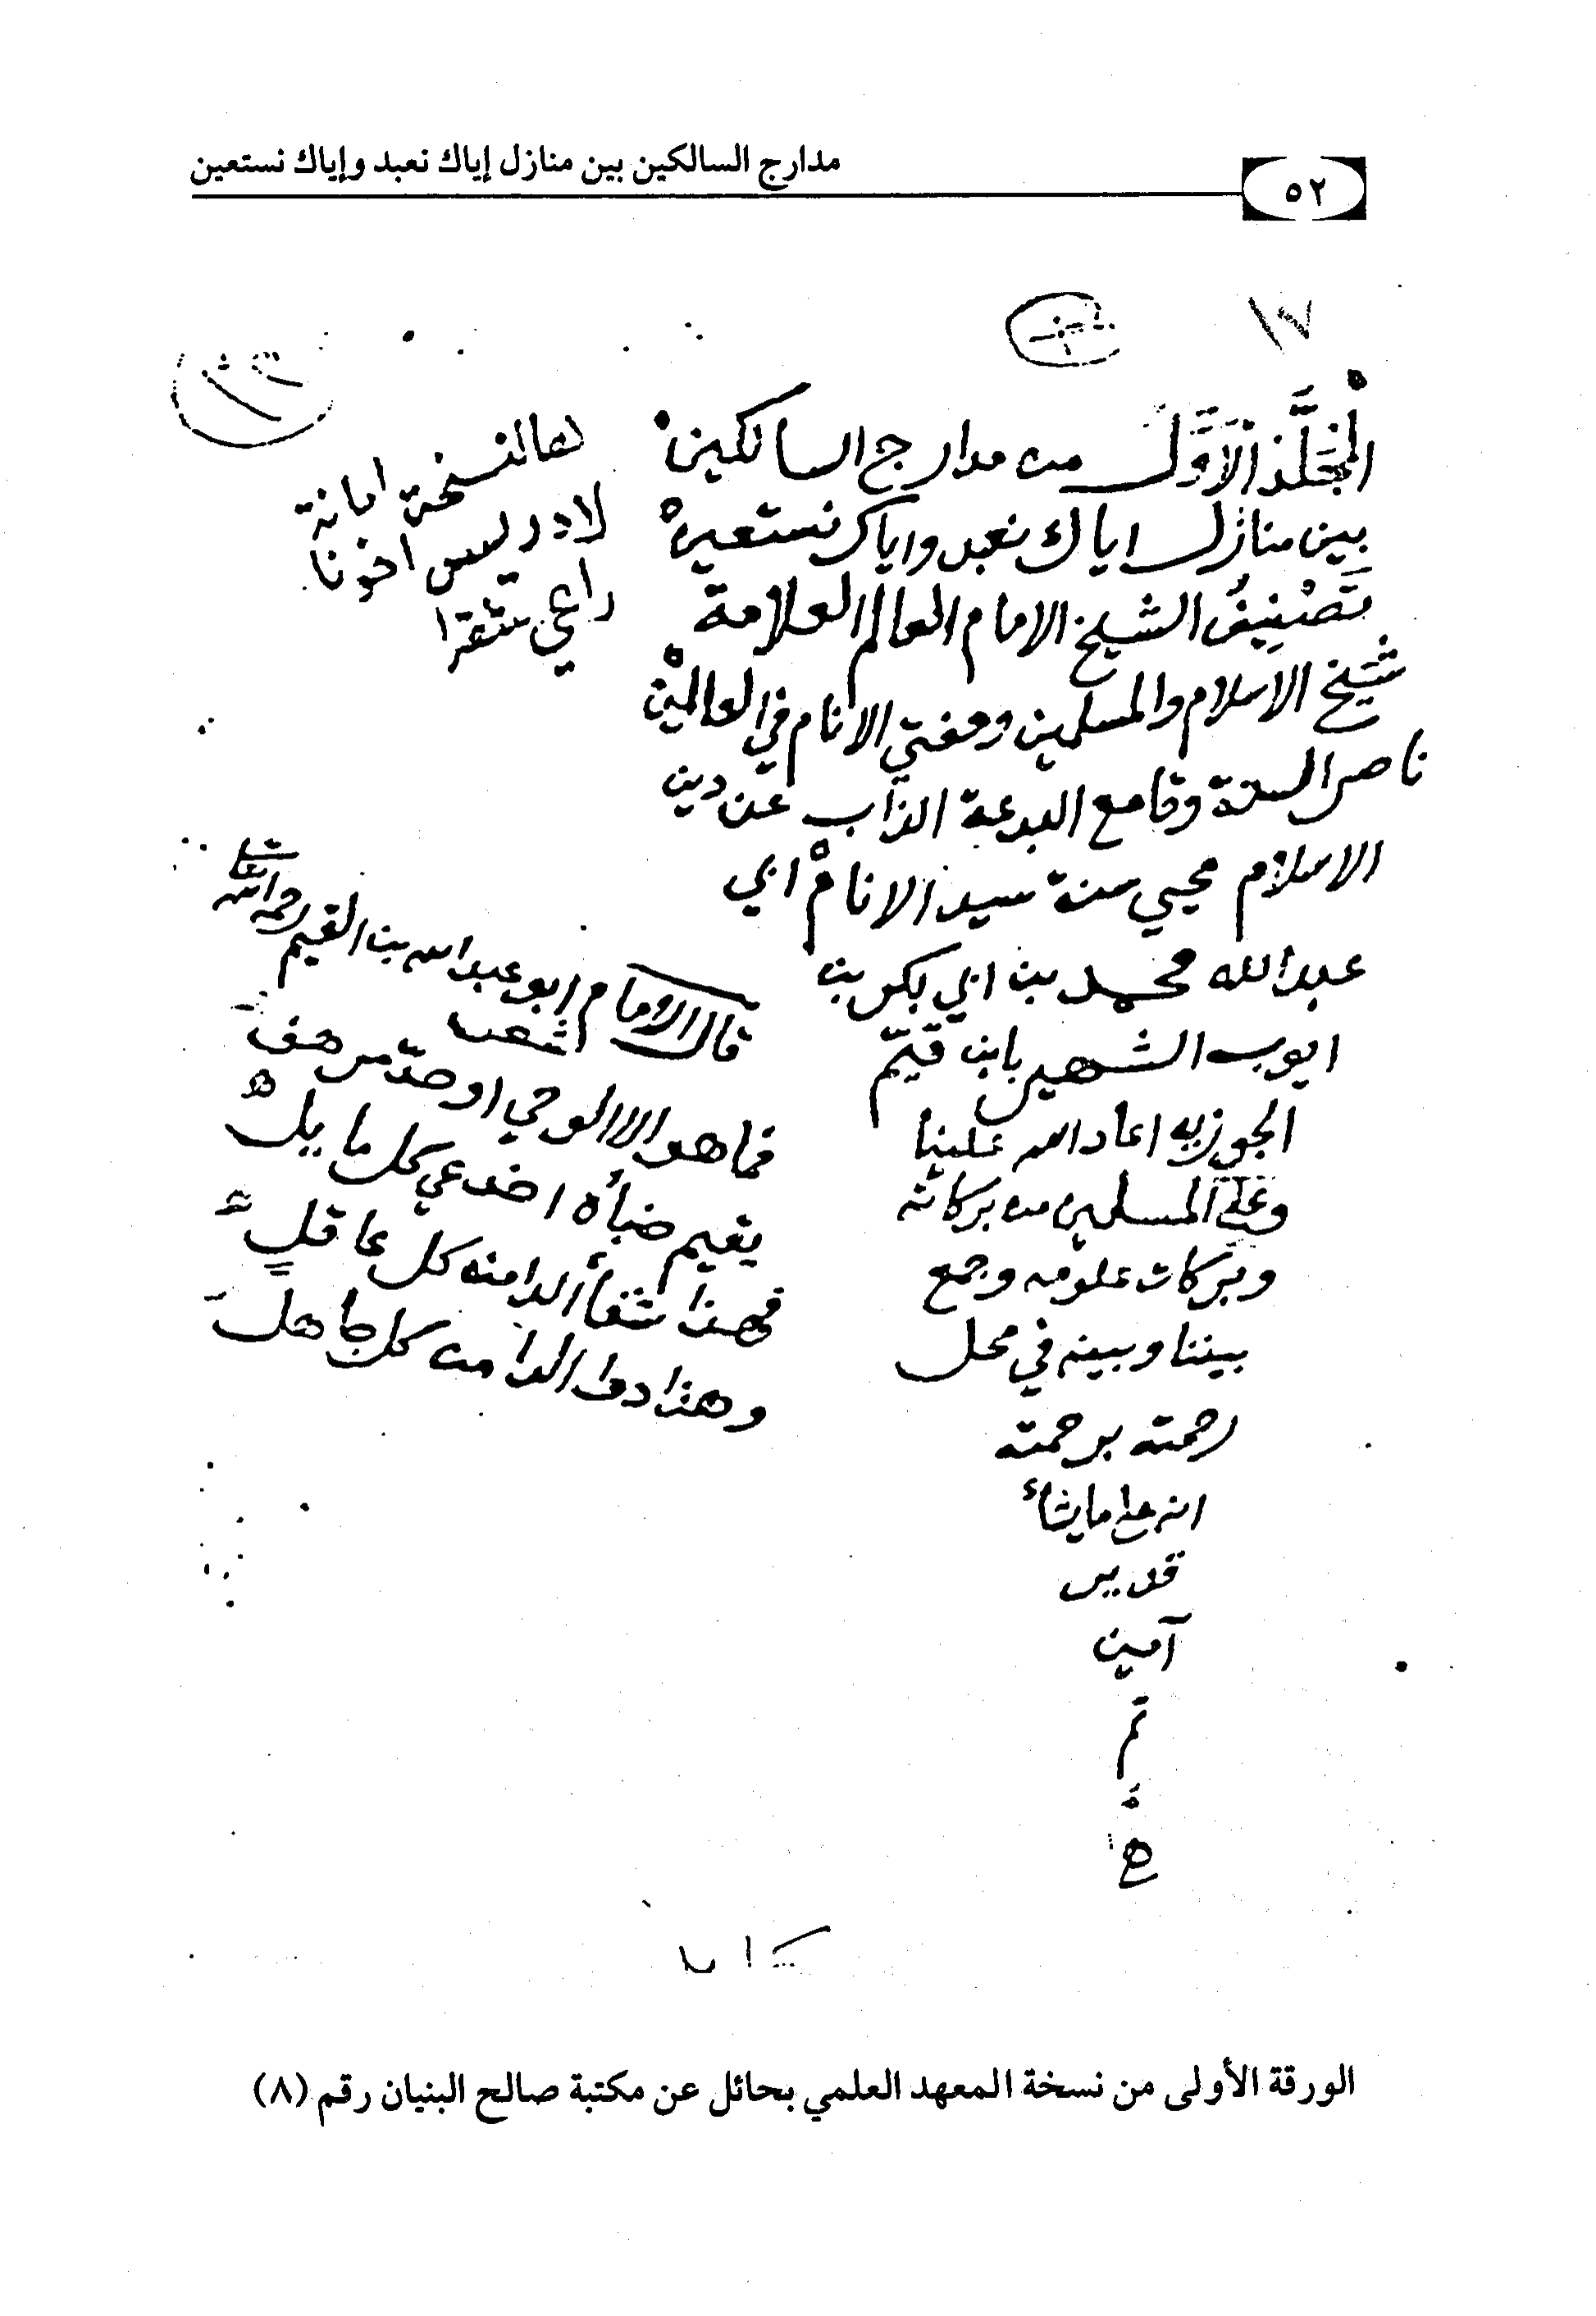 مدارج السالكين بين منازل إياك نعبد وإياك نستعين
٥٢
١٧
المجلد الاول من مدارج السالكين
بين منازل اياك نعبد واياك نستعين
تصنيف الشيخ الامام العالم العلامة
شيخ الاسلام والمسلمين ومفتي الانام في العالمين
ناصر السنة وقامع البدعة الذاب عن دين
الاسلام محيي سنة سيد الانام ابي
عبد الله محمد بن ابي بكر بن
ايوب الشهير بابن قيّم
الجوزيه اعاد الله علينا
وعلى المسلمين من بركاته
وبركات علومه وجمع
بيننا وبينه في محل
رحمته برحمته
انه على ما يشاء
قدير
آمين
تم
هالنسخة امانة
لادريس اخونا
راعي شقرا
قال الامام ابو عبد الله بن القيم رحمه الله تعالى
شعر
فما هو الا الوحي او حدّ مرهف
يقيم ضباه اخدعي كل مايل
فهذا شفاء الدا منه كل عاقلٍ
وهذا دوا الدا من كل جاهل
الورقة الأولى من نسخة المعهد العلمي بحائل عن مكتبة صالح البنيان رقم (٨)